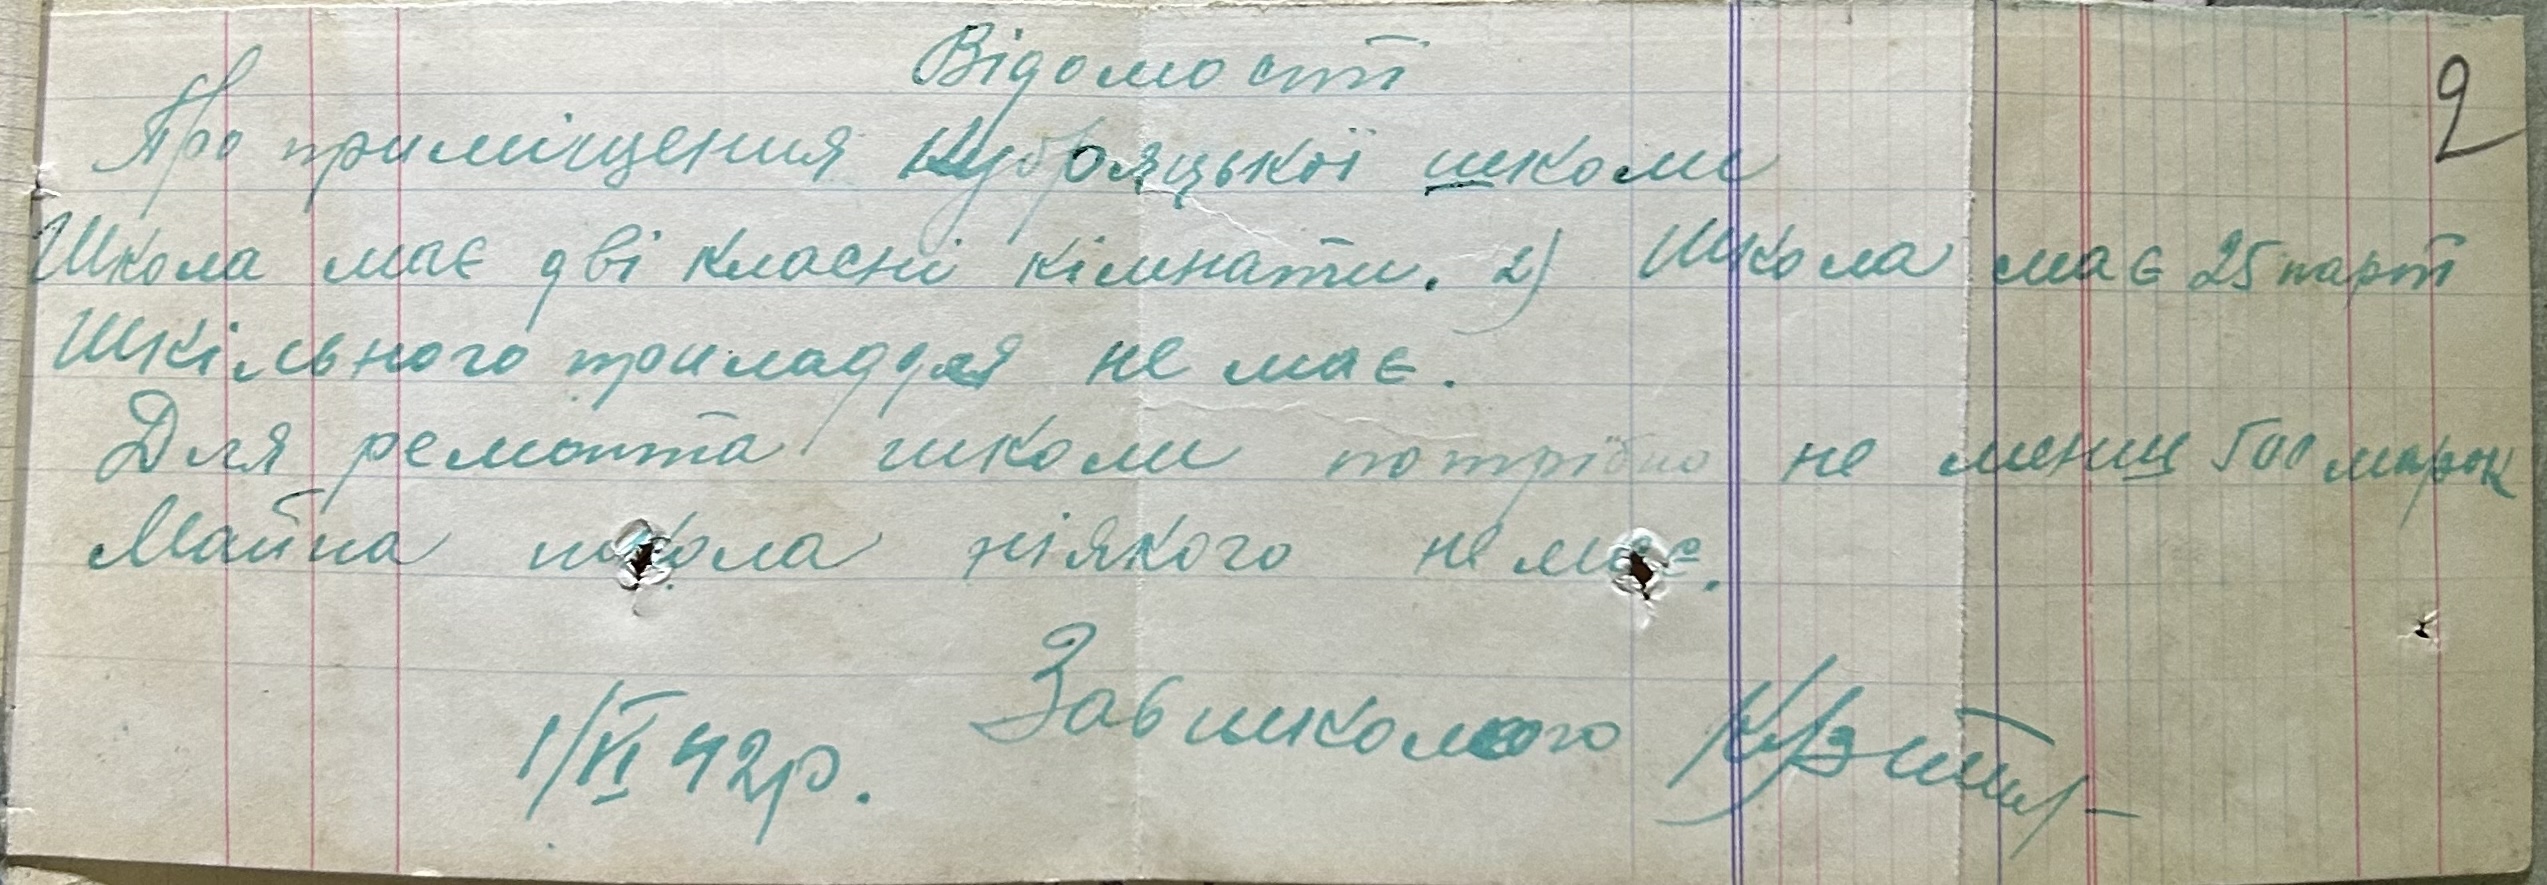 Відомості
2
Про приміщення Кубряцької школи
Школа має дві класні кімнати. 2) Школа має 25 парт
Шкільного приладдя не має.
Для ремонта школи потрібно не менш 500 марок
Майна школа ніякого не має.
Завшколою
1/VI 42р.